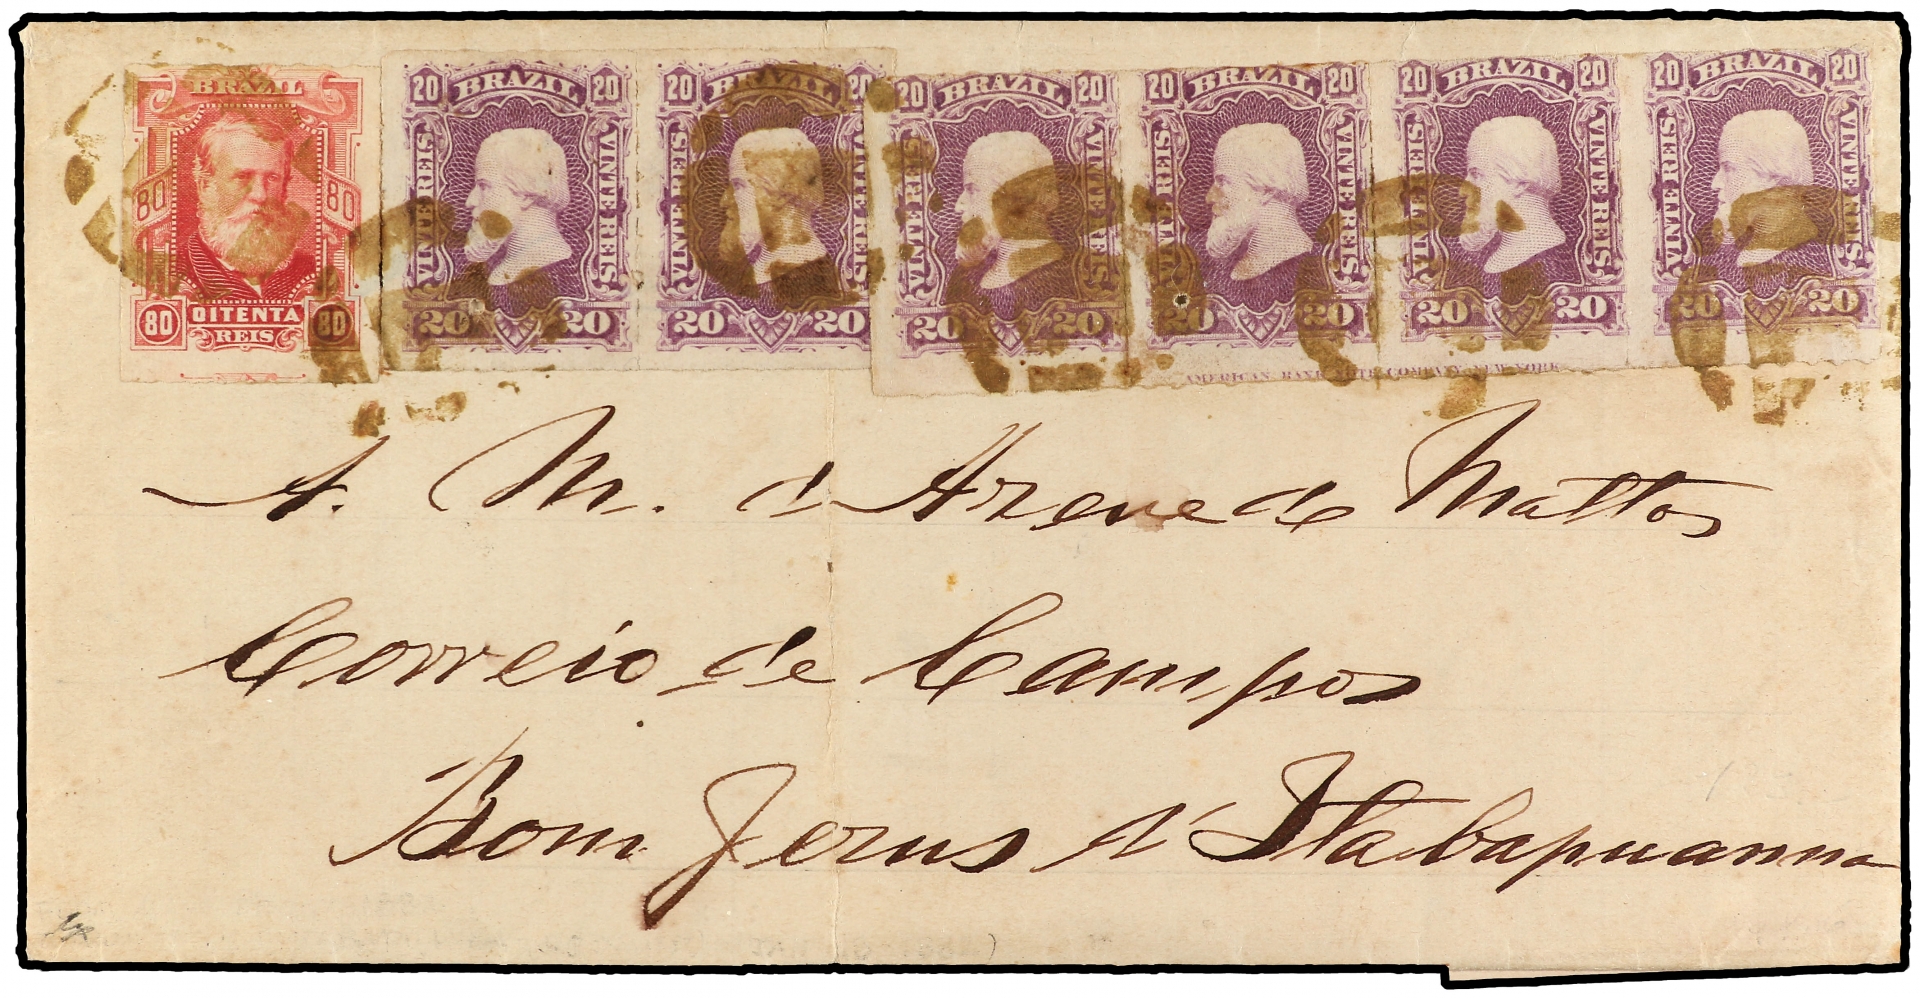 BRAZIL
80 80
OITENTA
80 REIS 80
20 BRAZIL 20
VINTE REIS VINTE REIS
20 20
20 BRAZIL 20
VINTE REIS VINTE REIS
20 20
20 BRAZIL 20
VINTE REIS VINTE REIS
20 20
20 BRAZIL 20
VINTE REIS VINTE REIS
20 20
20 BRAZIL 20
VINTE REIS VINTE REIS
20 20
20 BRAZIL 20
VINTE REIS VINTE REIS
20 20
AMERICAN BANK NOTE COMPANY NEW YORK
A. M. d'Azevedo Mattos
Correio de Campos
Bom Jesus d'Itabapuanna